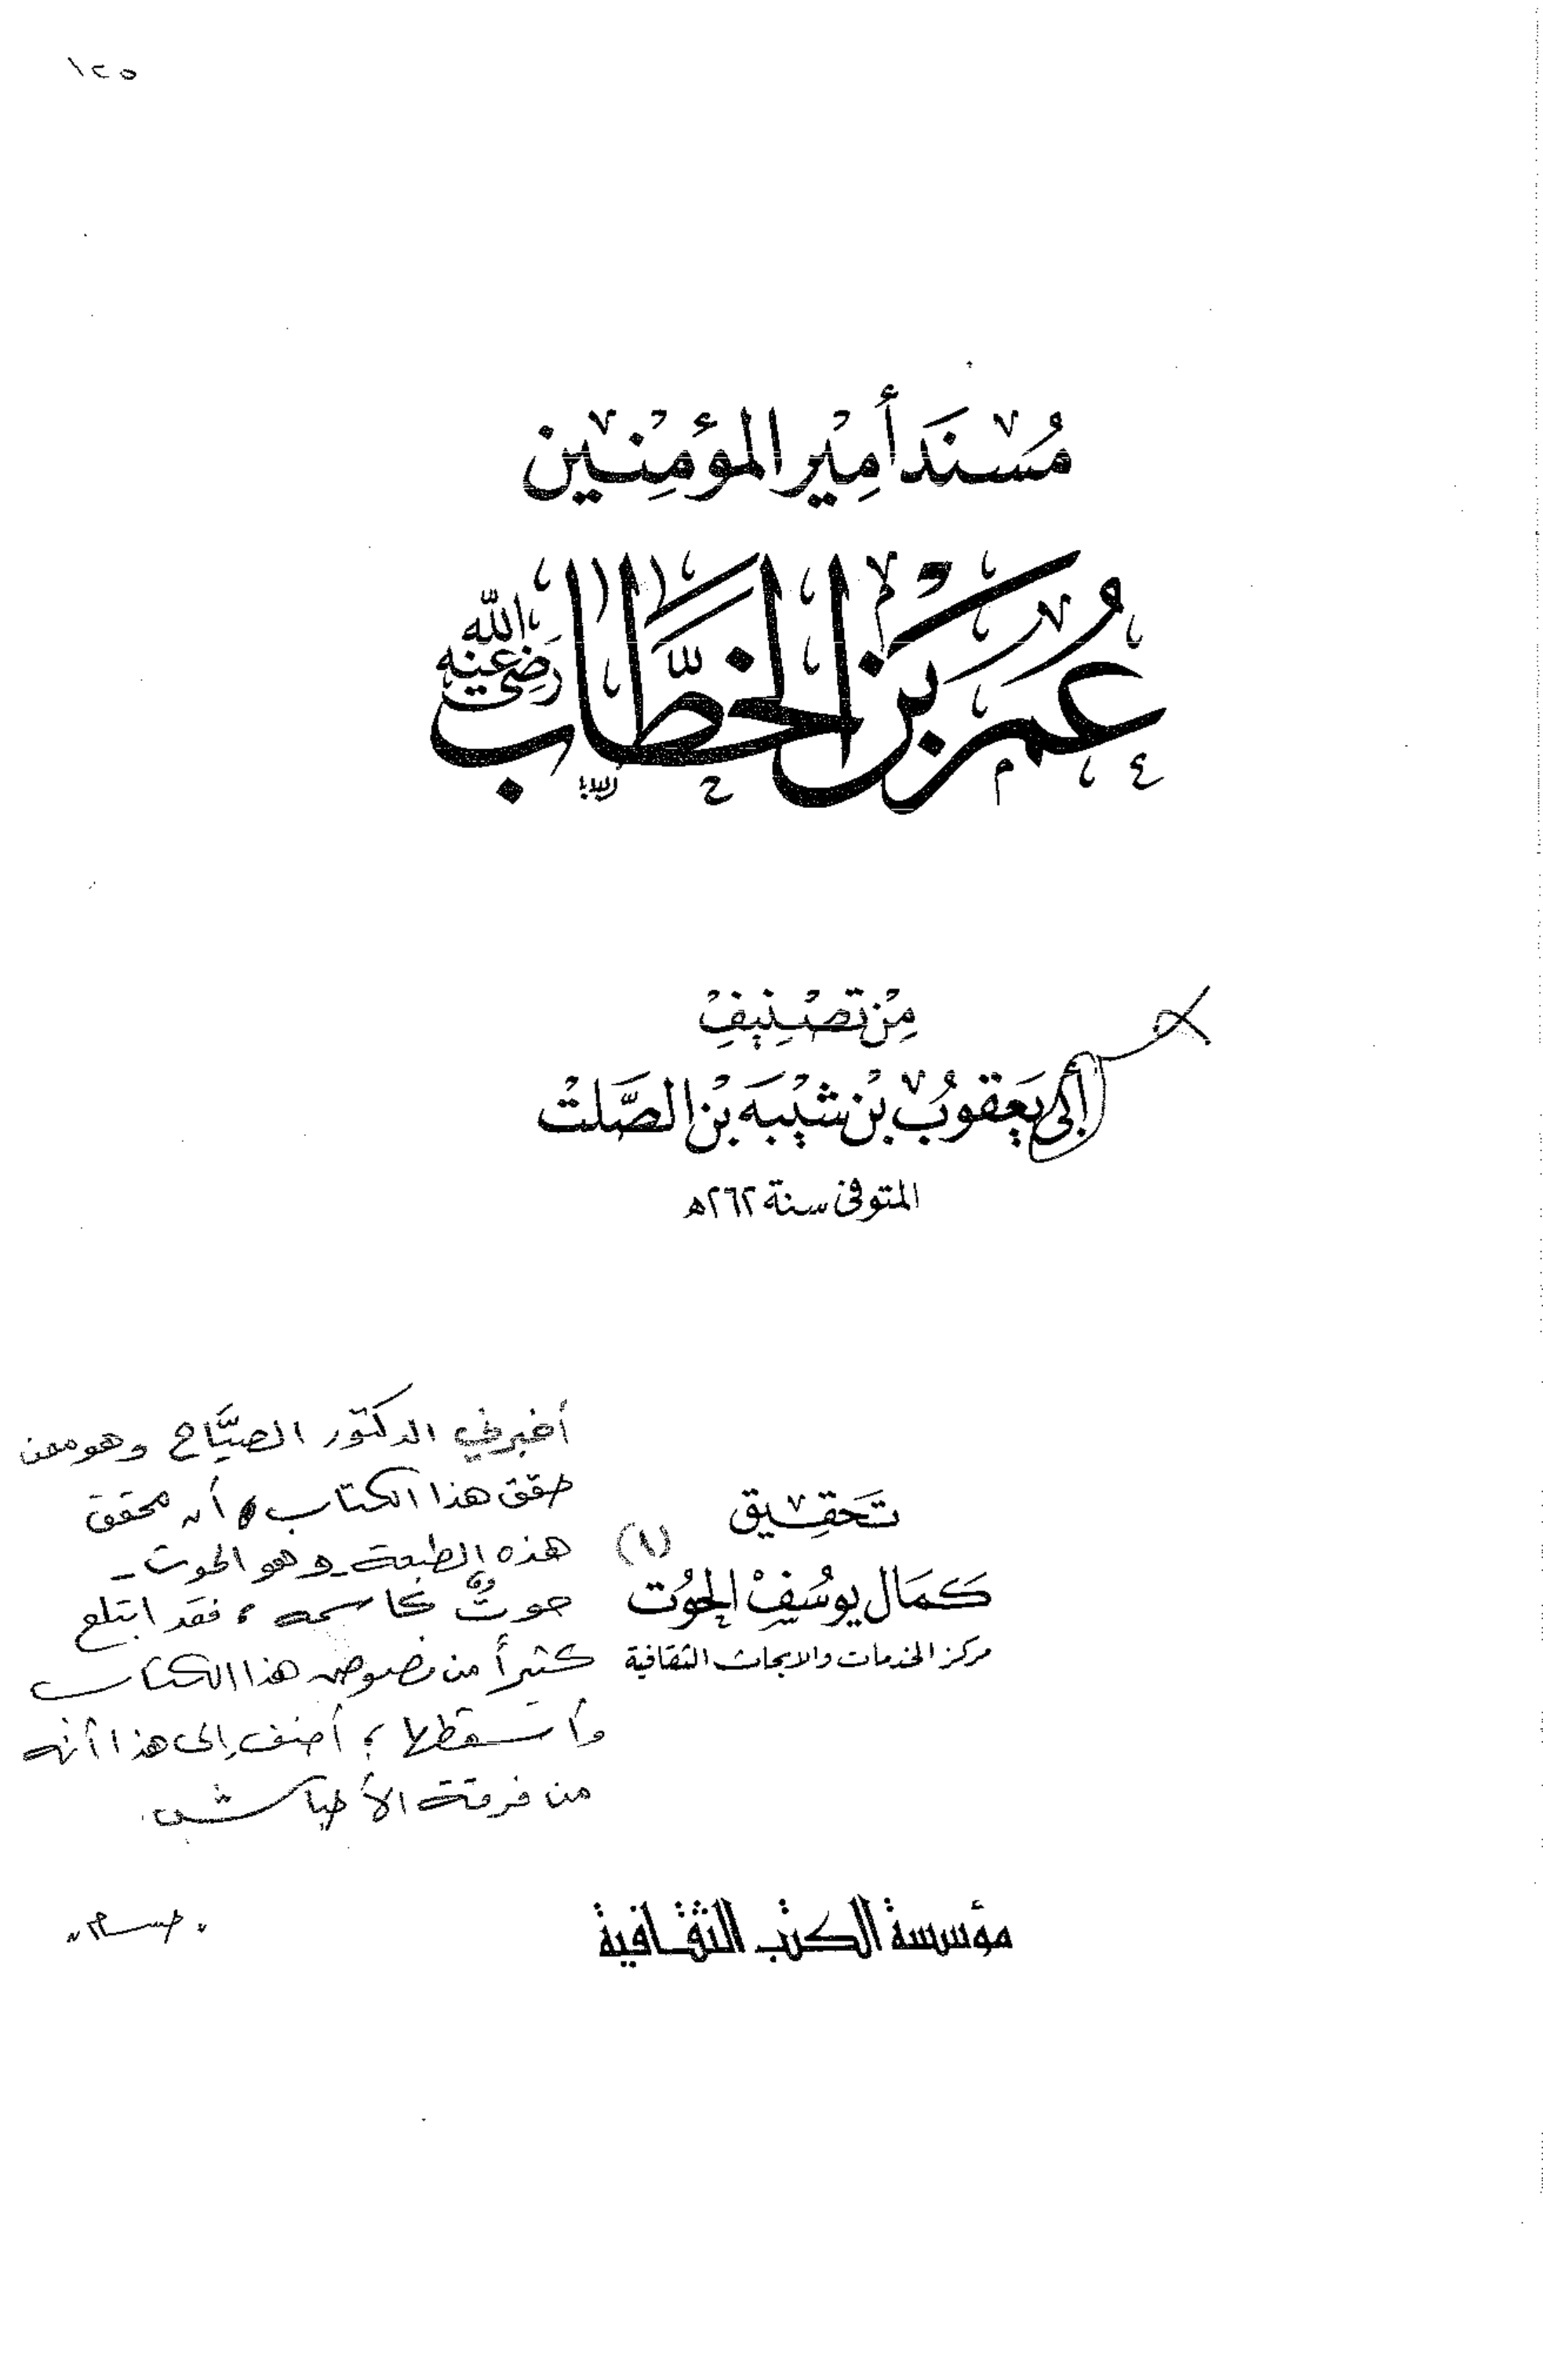 ١٢٥
مُسْنَد أمِير المؤمِنِين
عُمَر بْن الخَطَّاب
رَضِيَ الله عَنه
مِنْ تَصْنِيفِ
أبي يَعقوبْ بْن شَيْبَه بْن الصَّلتْ
المتوفى سنة ٢٦٢ھ
تَحَقِيق
(١)
كَمَال يوسُفْ الحوُت
مركز الخدمات والابحاث الثقافية
أخبرني الدكتور الصيَّاح وهو ممن
حقق هذا الكتاب، أن محقق
هذه الطبعة - وهو الحوت -
حوتٌ كاسمه، فقد ابتلع
كثيراً من نصوص هذا الكتاب
وأسقطها؛ أضف إلى هذا أنه
من فرقة الأحباش.
مؤسسة الكتب الثقافية